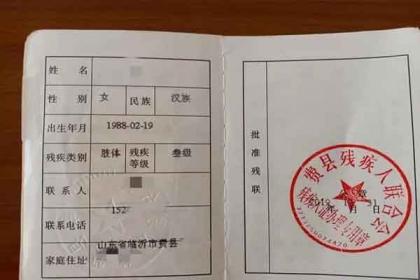 姓 名
性 别 女 民族 汉族
出生年月 1988-02-19
残疾类别 肢体 残疾等级 叁级
联 系 人
联系电话 152
家庭住址 山东省临沂市费县
批准残联
费县残疾人联合会